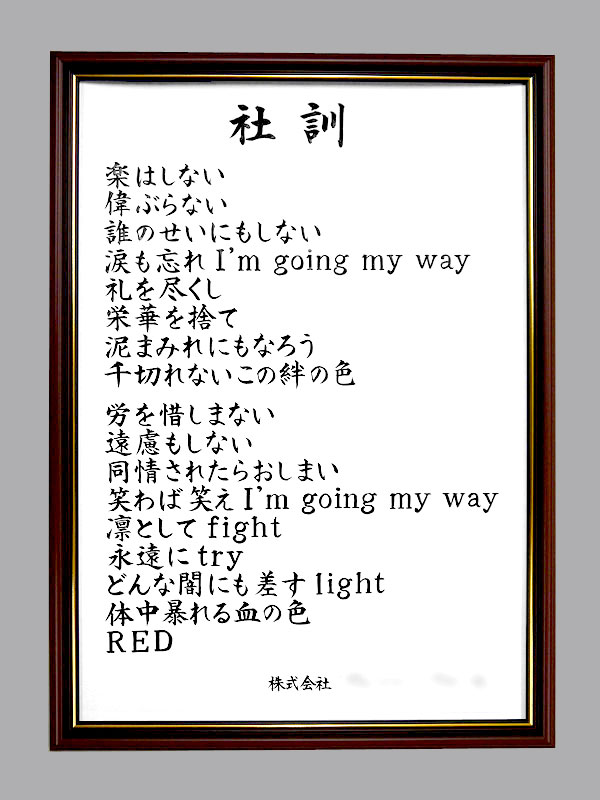 社訓
楽はしない
偉ぶらない
誰のせいにもしない
涙も忘れ I'm going my way
礼を尽くし
栄華を捨て
泥まみれにもなろう
千切れないこの絆の色
労を惜しまない
遠慮もしない
同情されたらおしまい
笑わば笑え I'm going my way
凛として fight
永遠に try
どんな闇にも差す light
体中暴れる血の色
RED
株式会社